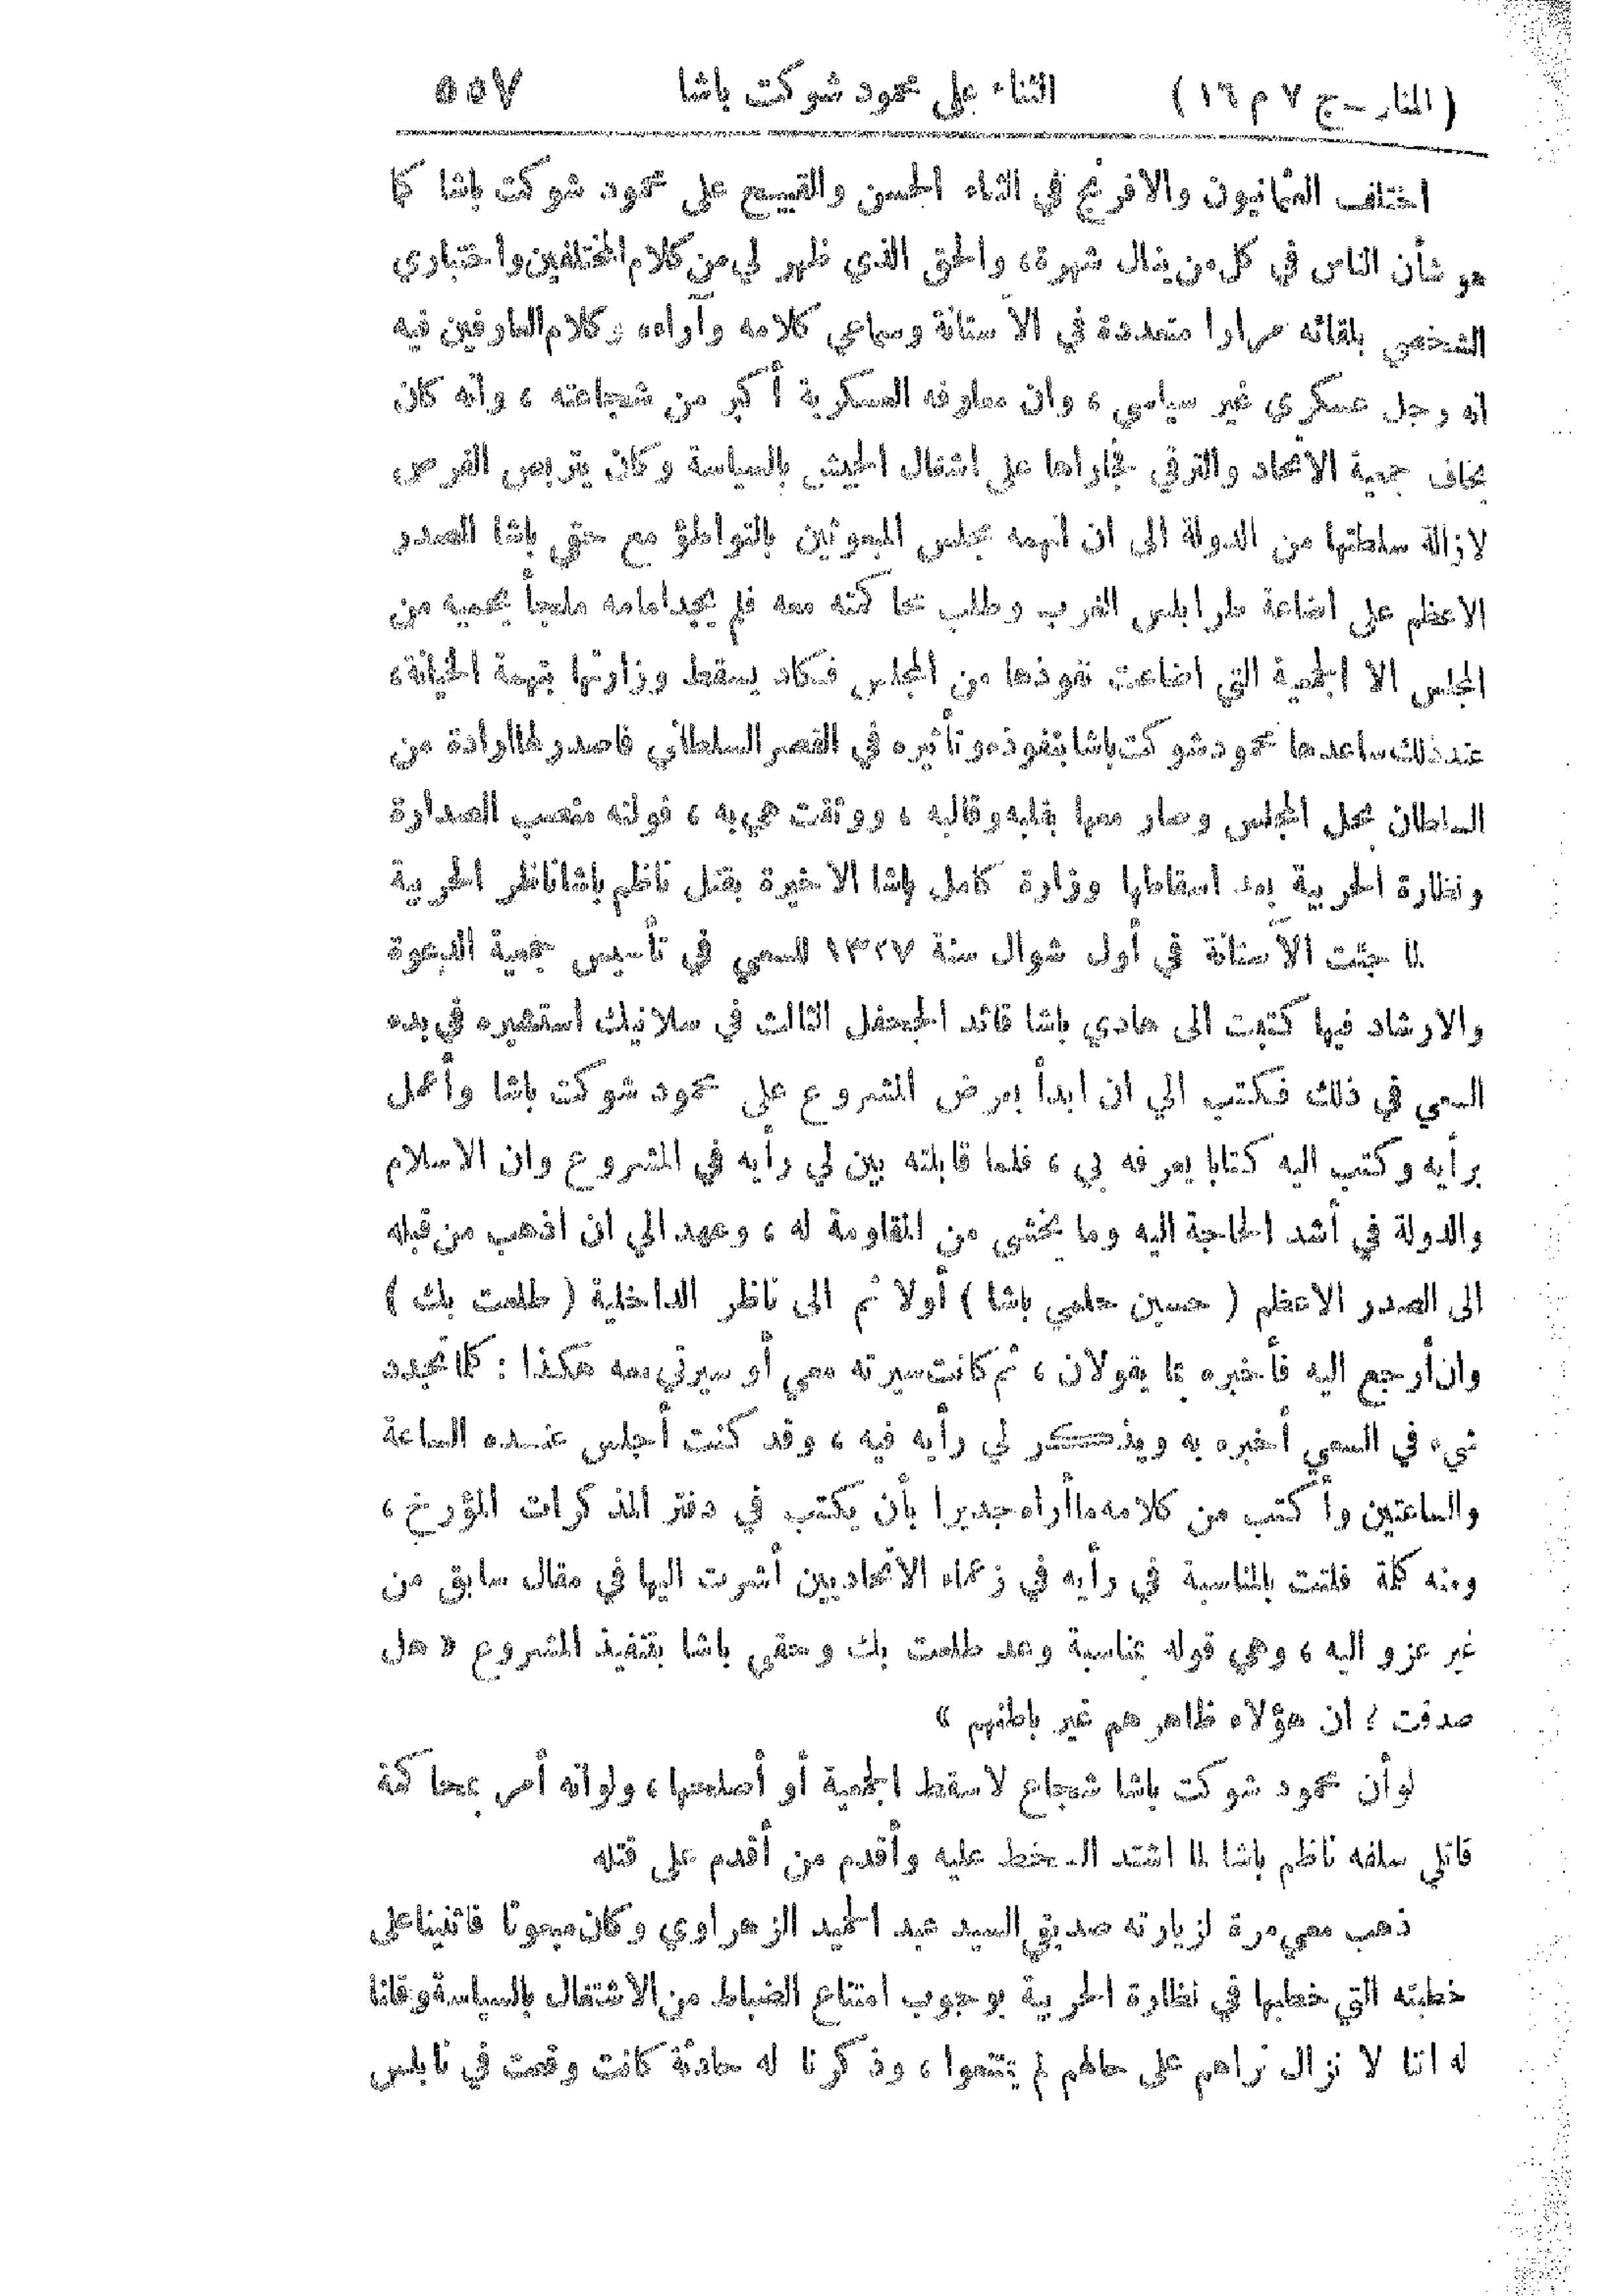 (المنار – ج ٧ م ١٦) الثناء على محمود شوكت باشا ٥٥٧
اختلف العثمانيون والافرنج في الثناء الحسن والقبيح على محمود شوكت باشا كما
هو شأن الناس في كل من ينال شهرة، والحق الذي ظهر لي من كلام المختلفين واختباري
الشخصي بلقائه مرارا متعددة في الآستانة وسماعي كلامه وآراءه وكلام العارفين فيه
انه رجل عسكري غير سياسي، وان معارفه العسكرية أكبر من شجاعته، وانه كان
يخاف جمعية الاتحاد والترقي فجاراها على اشتغال الجيش بالسياسة وكان يتربص الفرص
لازالة سلطتها من الدولة الى ان اتهمه مجلس المبعوثين بالتواطؤ مع حقي باشا الصدر
الاعظم على اضاعة طرابلس الغرب وطلب محاكمته معه فلم يجد امامه ملجأ يحميه من
المجلس الا الجمعية التي اضاعت نفوذها من المجلس فكاد يسقط وزارتها بتهمة الخيانة،
عند ذلك ساعدها محمود شوكت باشا بنفوذه وتأثيره في القصر السلطاني فاصدر لها ارادة من
السلطان بحل المجلس وصار معها بقلبه وقالبه، ووثقت هي به، فولته منصب الصدارة
ونظارة الحربية بعد اسقاطها وزارة كامل باشا الاخيرة بقتل ناظم باشا ناظر الحربية
لما جئت الآستانة في أول شوال سنة ١٣٢٧ للسعي في تأسيس جمعية الدعوة
والارشاد فيها كتبت الى هادي باشا قائد الجحفل الثالث في سلانيك استشيره في بدء
السعي في ذلك فكتب الي ان ابدأ بعرض المشروع على محمود شوكت باشا وأعمل
برأيه وكتب اليه كتابا يعرفه بي، فلما قابلته بين لي رأيه في المشروع وان الاسلام
والدولة في أشد الحاجة اليه وما يخشى من المقاومة له، وعهد الي ان اذهب من قبله
الى الصدر الاعظم (حسين حلمي باشا) أولا ثم الى ناظر الداخلية (طلعت بك)
وان أرجع اليه فأخبره بما يقولان، ثم كانت سيرته معي أو سيرتي معه هكذا: كلما تجدد
شيء في السعي أخبره به ويذكر لي رأيه فيه، وقد كنت أجلس عنده الساعة
والساعتين وأكتب من كلامه ما أراه جديرا بأن يكتب في دفتر المذكرات المؤرخ،
ومنه كلمة قلتت بالمناسبة في رأيه في زعماء الاتحاديين أشرت اليها في مقال سابق من
غير عزو اليه، وهي قوله بمناسبة وعد طلعت بك وحقي باشا بتنفيذ المشروع «هل
صدقت؟ ان هؤلاء ظاهرهم غير باطنهم»
لو أن محمود شوكت باشا شجاع لاسقط الجمعية أو أصلحها، ولو انه أمر بمحاكمة
قاتلي سلفه ناظم باشا لما اشتد السخط عليه وأقدم من أقدم على قتله
ذهب معي مرة لزيارته صديقي السيد عبد الحميد الزهراوي وكان مبعوثا فاثنينا على
خطبته التي خطبها في نظارة الحربية بوجوب امتناع الضباط من الاشتغال بالسياسة وقلنا
له اننا لا نزال نراهم على حالهم لم يمتنعوا، وذكرنا له حادثة كانت وقعت في نابلس